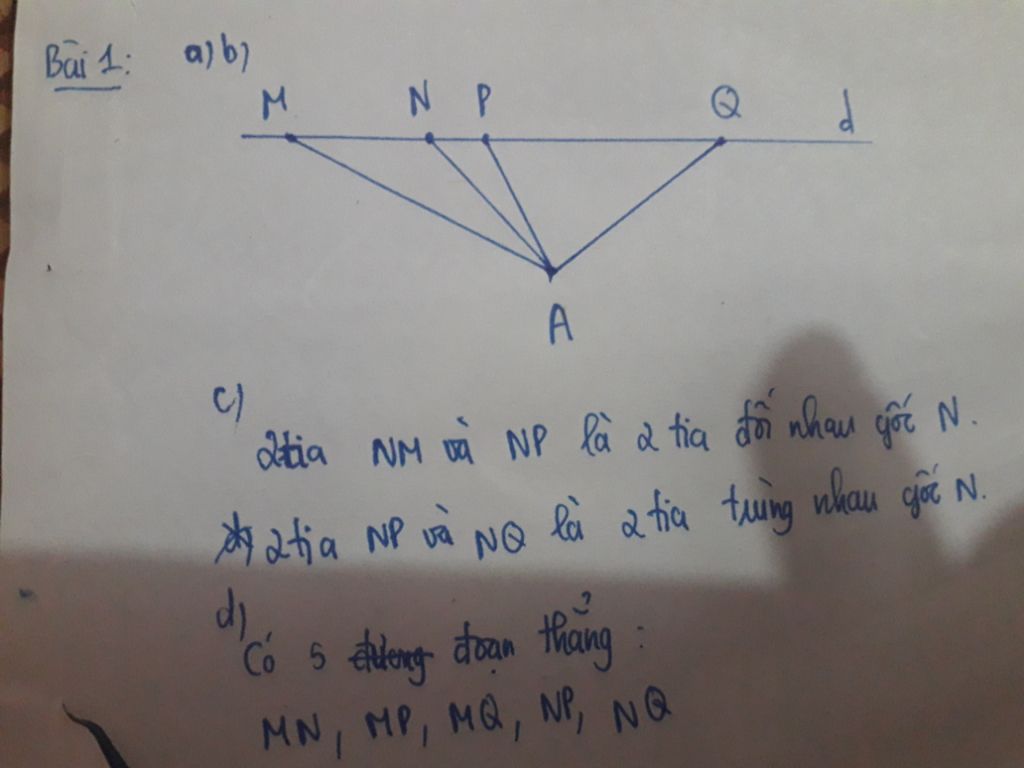 Bài 1: a) b)
M N P Q d
A
c)
2 tia NM và NP là 2 tia đối nhau gốc N.
2 tia NP và NQ là 2 tia trùng nhau gốc N.
d)
Có 5 đường đoạn thẳng:
MN, MP, MQ, NP, NQ